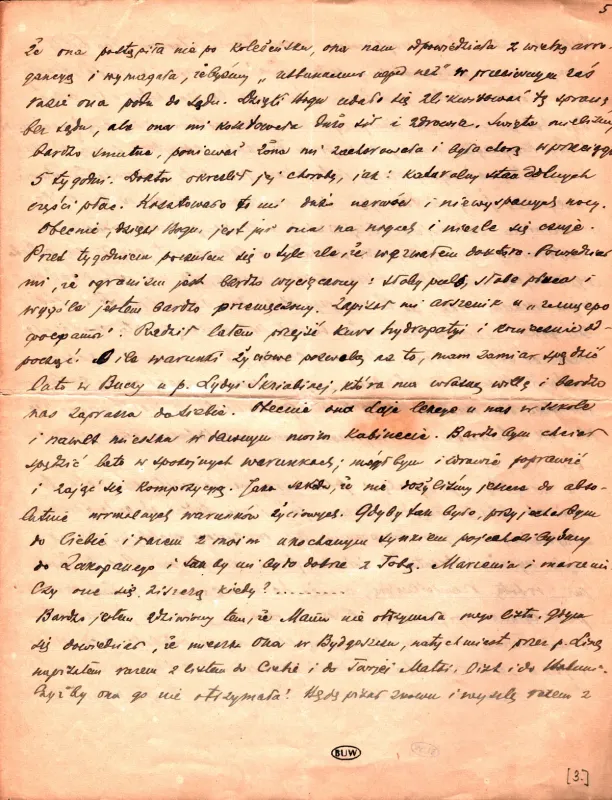 5
że ona postąpiła nie po koleżeńsku, ona nam odpowiedziała z wielką arro-
gancyą i wymagała, żebyśmy „ w przeciwnym zaś
razie ona poda do sądu. Dzięki Bogu udało się zlikwidować tę sprawę
bez sądu, ale ona mi kosztowała dużo sił i zdrowia. Święta mieliśmy
bardzo smutne, ponieważ żona mi zachorowała i była chora w przeciągu
5 tygodni. Doktor określił jej chorobę, jak: kataralny stan dolnych
części płuc. Kosztowało to mi dużo nerwów i niewyspanych nocy.
Obecnie, dzięki Bogu, jest już ona na nogach i nieźle się czuje.
Przed tygodniem poczułem się o tyle źle, że wezwałem doktora. Powiedział
mi, że organizm jest bardzo wycieńczony: słaby puls, słabe płuca i
wogóle jestem bardzo przemęczony. Zapisał mi arszenik i „
". Radził latem przejść kurs hydropatyi i koniecznie od-
począć. O ile warunki życiowe pozwolą na to, mam zamiar spędzić
lato w Buczy u p. Lydyi Skriabinej, która ma własną willę i bardzo
nas zaprasza do siebie. Obecnie ona daje lekcye u nas w szkole
i nawet mieszka w dawnym moim kabinecie. Bardzo bym chciał
spędzić lato w spokojnych warunkach; mógłbym i zdrowie poprawić
i zająć się kompozycyą. Jaka szkoda, że nie dożyliśmy jeszcze do abso-
lutnie normalnych warunków życiowych. Gdyby tak było, przyjechałbym
do Ciebie i razem z moim ukochanym synkiem pojechalibyśmy
do Zakopanego i tak by mi było dobrze z Tobą. Marzenia i marzenia
Czy one się ziszczą kiedy? ..........
Bardzo jestem zdziwiony tem, że Mania nie otrzymała mego listu. Gdym
się dowiedział, że mieszka Ona w Bydgoszczu, natychmiast przez p. Linę
napisałem razem z listem do Ciebie i do Twojej Matki, list i do
Czyżby ona go nie otrzymała! Będę pisał znowu i wyślę razem z
BUW
[3.]